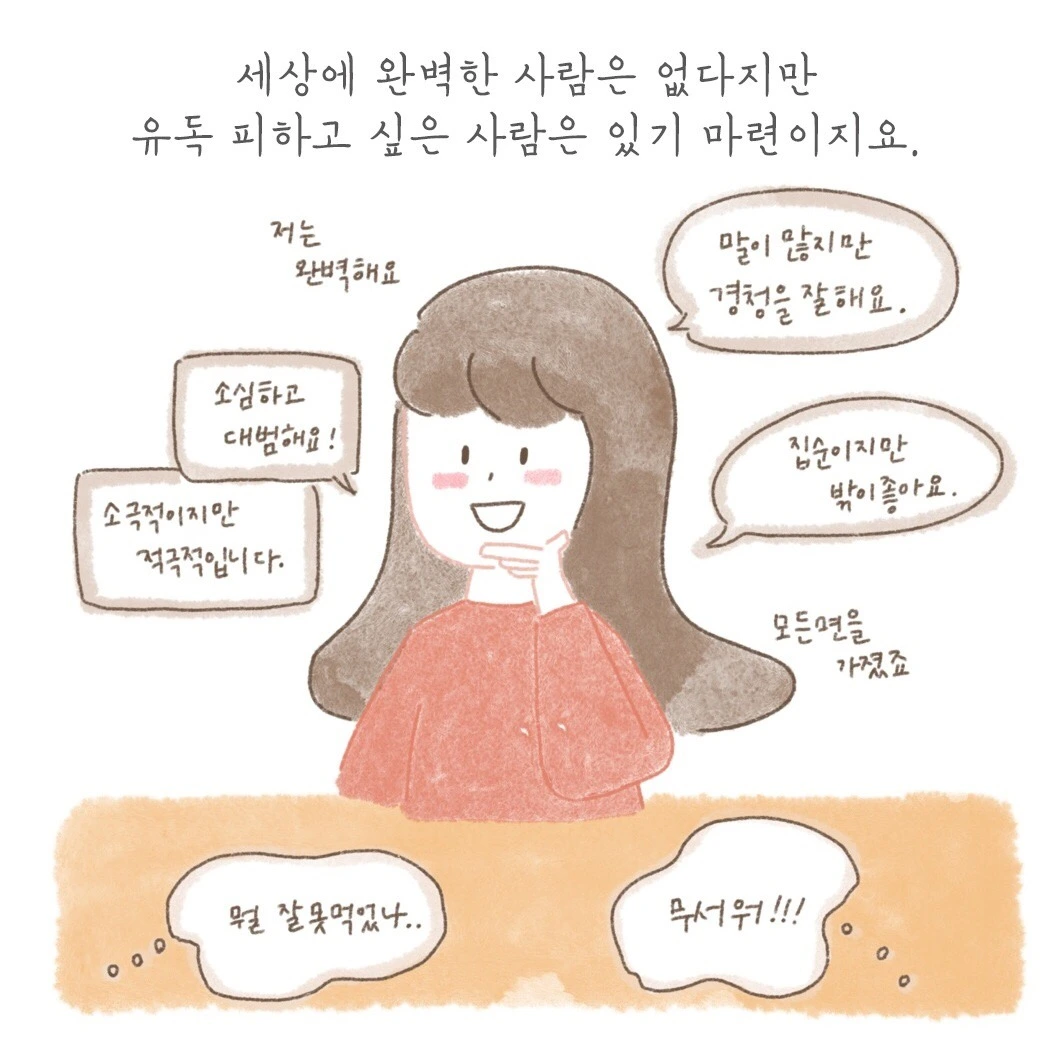 세상에 완벽한 사람은 없다지만
유독 피하고 싶은 사람은 있기 마련이지요.
저는
완벽해요
말이 많지만
경청을 잘해요.
소심하고
대범해요!
소극적이지만
적극적입니다.
집순이지만
밖이 좋아요.
모든면을
가졌죠
뭘 잘못먹었나..
무서워!!!